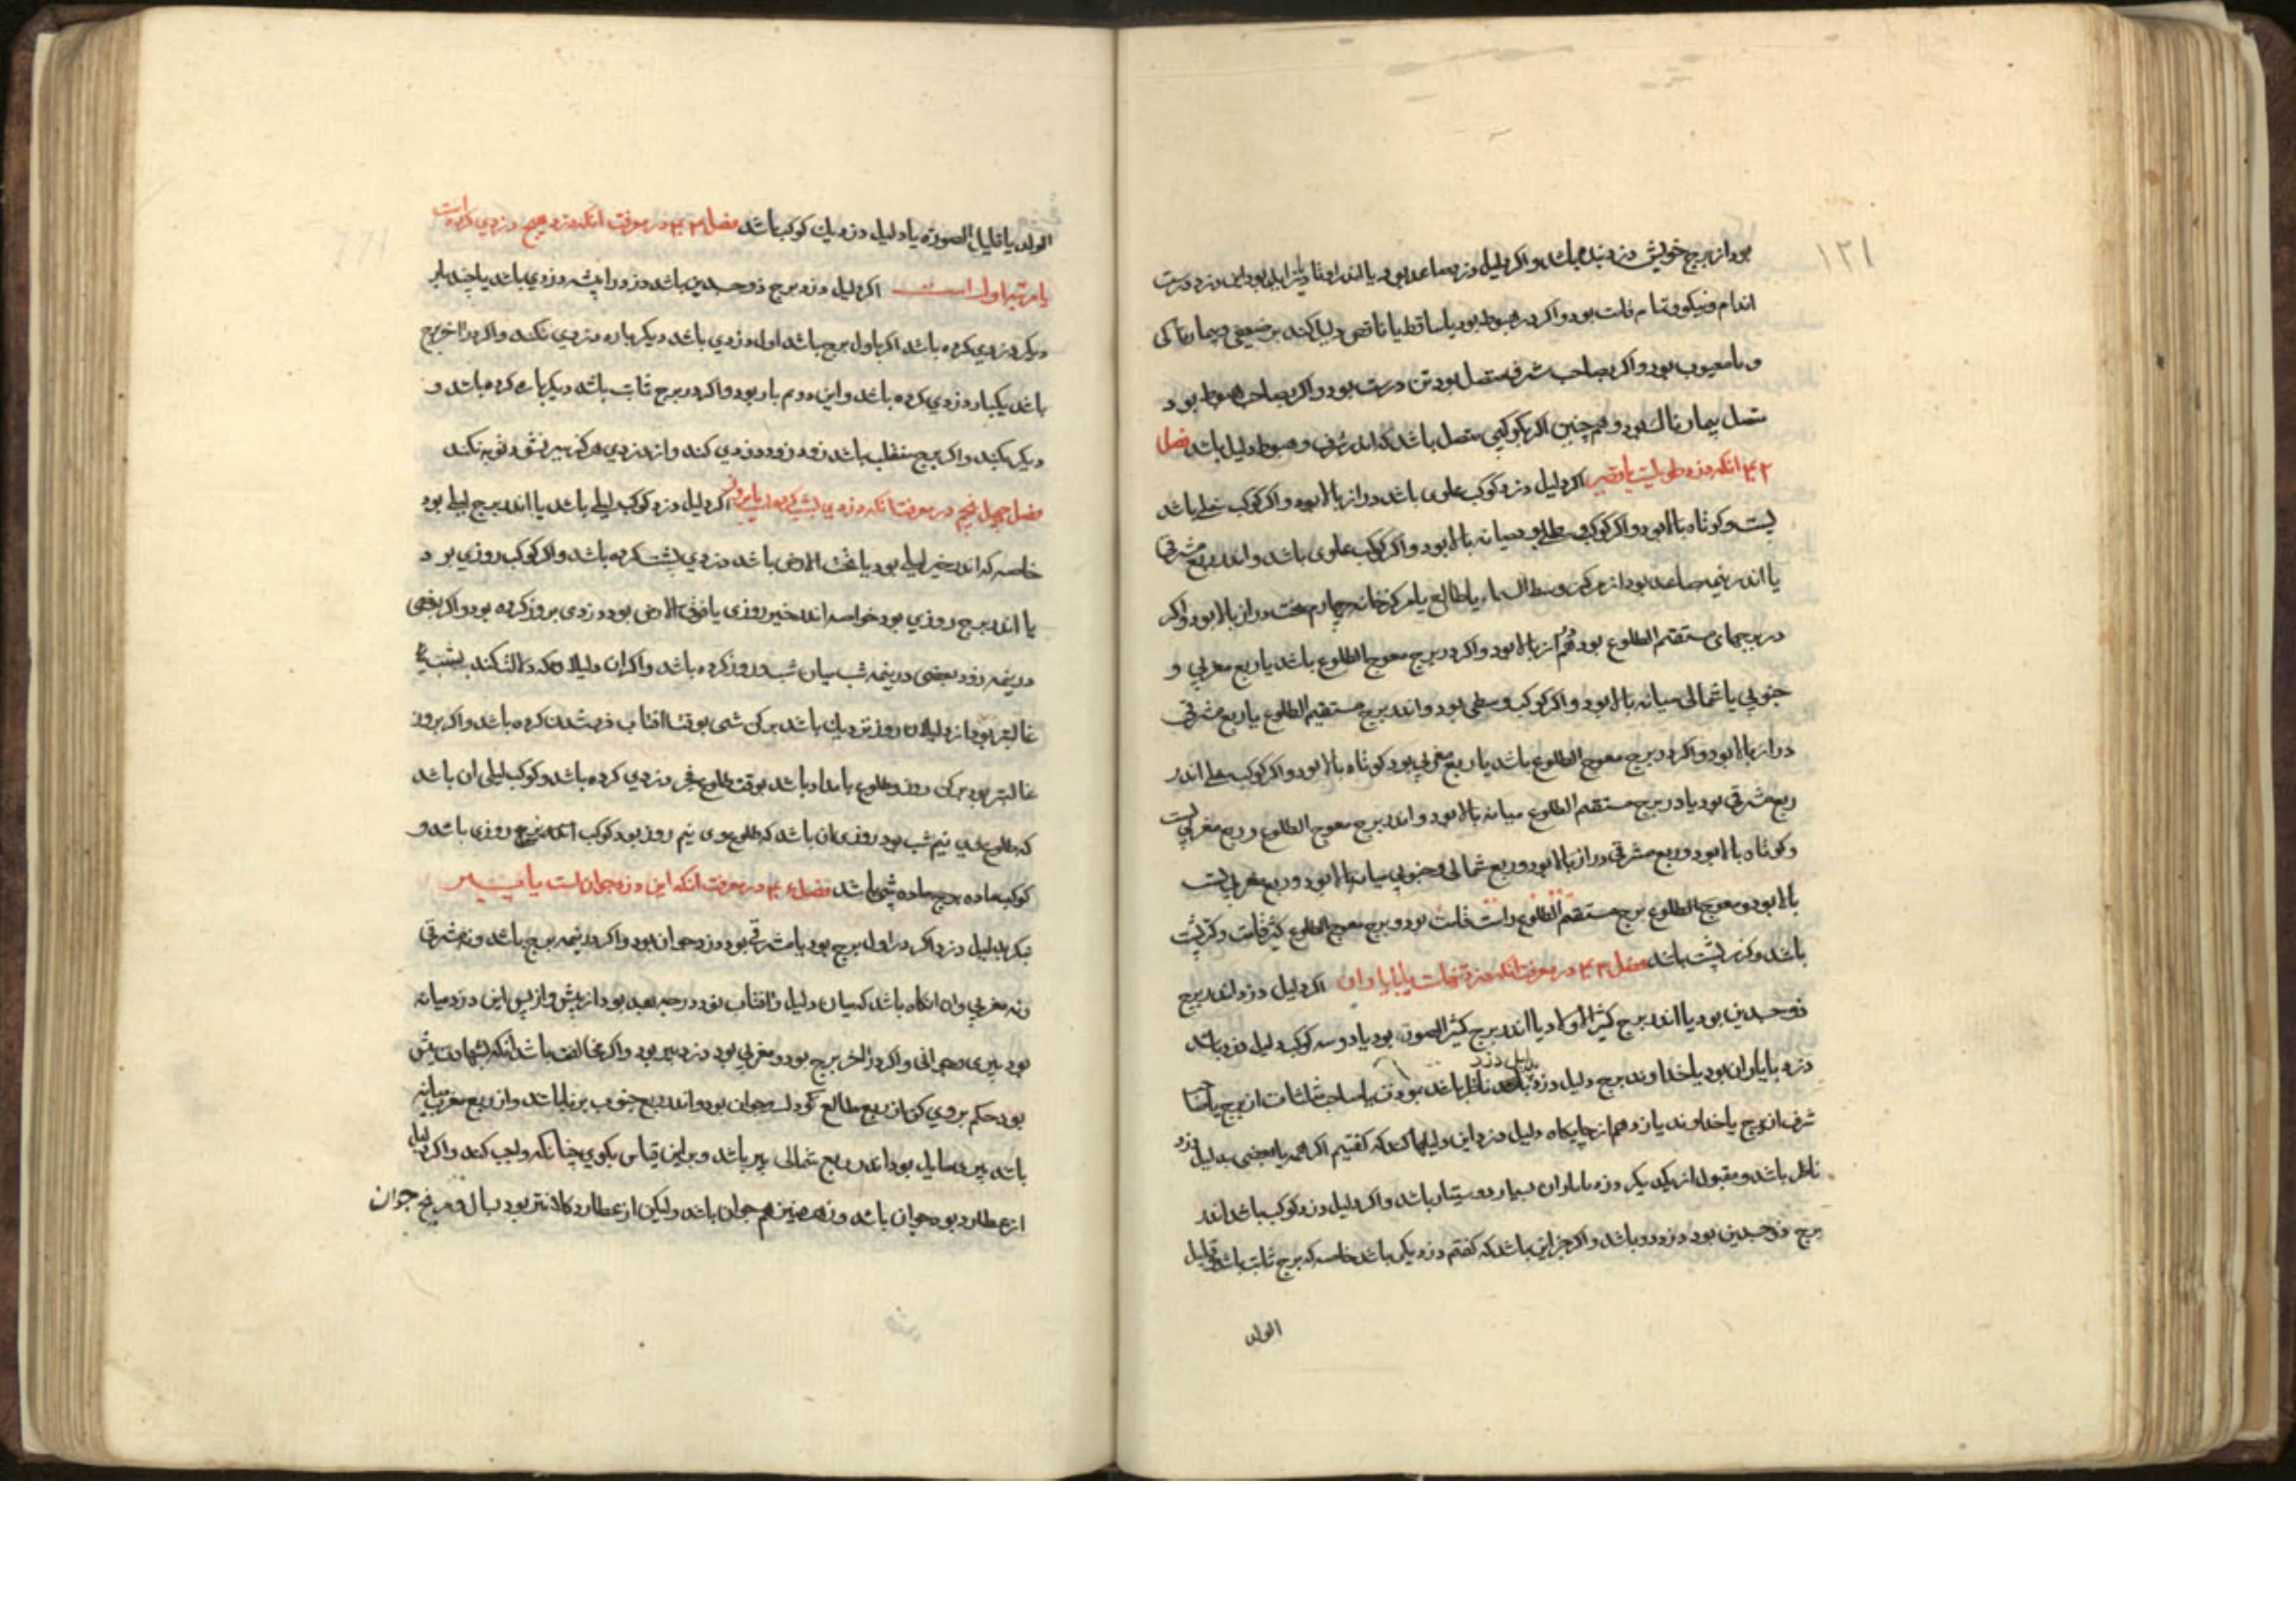 ۱۲۱
بود از برج خویش دزد بنده باشد و اگر دلیل دزد صاعد بود یا اندر اوتاد یا زاید بود این دزد درست
اندام و نیکو و تمام قامت بود و اگر در هبوط بود یا ساقط یا ناقص دلیل کند بر ضعیفی و بیمارناکی
و نا معیوب بود و اگر بصاحب شرف متصل بود تن درست بود و اگر بصاحب هبوط بود
متصل بیمارناک بود و هم چنین اگر بکوکبی متصل باشد که اندر شرف و هبوط دلیل باشد فصل
۴۲ انکه دزد طویلست یا قصیر اگر دلیل دزد کوکب علوی باشد دراز بالا بود و اگر کوکب سفلی باشد
پست و کوتاه بالا بود و اگر کوکب میانه بالا بود و اگر کوکب علوی باشد و اندر ربع مشرقی
یا اندر نیمه صاعد بود از مرکز وسط السماء یا طالع یا مرکز خانه چهارم سخت دراز بالا بود و اگر
در برجهای مستقیم الطلوع بود هم دراز بالا بود و اگر در برج معوج الطلوع باشد یا ربع مغربی و
جنوبی یا شمالی میانه بالا بود و اگر کوکب وسطی بود و اندر برج مستقیم الطلوع یا ربع مشرقی
دراز بالا بود و اگر در برج معوج الطلوع باشد یا ربع مغربی بود کوتاه بالا بود و اگر کوکب سفلی اندر
ربع مشرقی بود یا در برج مستقیم الطلوع میانه بالا بود و اندر برج معوج الطلوع و ربع مغربی پست
و کوتاه بالا بود و ربع مشرقی دراز بالا بود و ربع شمالی و جنوبی میانه بالا بود و ربع مغربی پست
بالا بود و معوج الطلوع برج مستقیم الطلوع راست قامت بود و برج معوج الطلوع کژ قامت و کژ پشت
باشد و کوز پشت باشد فصل ۴۳ در معرفت انکه دزد تنهاست یا با یاران اگر دلیل دزد اندر برج
ذو جسدین بود یا اندر برج کثیر الاولاد یا اندر برج کثیر الصورة بود یا دو سه کوکب دلیل دزد باشد
دزد با یاران بود یا خداوند برج دلیل دزد بدلیل دزد ناظر باشد بمودت یا صاحب مثلثات ان برج یا صاحب
شرف ان برج یا خداوند یان و هم از جایگاه دلیل دزد این دلیلها کند که گفتیم اگر همه یا بعضی بدلیل دزد
ناظر باشد و مقبول از یکدیگر دزد با یاران بسیار و دوستدار باشد و اگر دلیل دزد کوکب باشد اندر
برج ذو جسدین بود دزد دو باشد و اگر جز این باشد که گفتم دزد یکی باشد خاصه که برج ثابت باشد و قلیل
الولد
الولد یا قلیل الصورة یا دلیل دزد یک کوکب باشد فصل ۴۴ در معرفت انکه دزد هیچ دزدی کرده است
یا مرتبه اول است اگر دلیل دزد برج ذو جسدین باشد دزد را پیشه دزدی باشد یا چند بار
دیگر دزدی کرده باشد اگر باول برج باشد اول دزدی باشد دیگر باره دزدی نکند و اگر در اخر برج
باشد یکبار دزدی کرده باشد و این دوم بار بود و اگر در برج ثابت باشد دیگر باره کرده باشد و
دیگر نکند و اگر برج منقلب باشد زود زود دزدی کند و از دزدی هرگز سیر نشود و توبه نکند
فصل چهل پنجم در معرفت انکه دزدی بشب کرده است یا بروز اگر دلیل دزد کوکب لیلی باشد یا اندر برج لیلی بود
خاصه که اندر حیز لیلی بود یا تحت الارض باشد دزدی بشب کرده باشد و اگر کوکب روزی بود
یا اندر برج روزی بود خواصه اندر حیز روزی یا فوق الارض بود دزدی بروز کرده بود و اگر بعضی
در نیمه روز و بعضی در نیمه شب میان شب و روز کرده باشد و اگر ان دلیلان که دلالت کند بشب
غالبتر بود از دلیلان روز نزدیک باشد برکن شی بوقت افتاب فرو شدن کرده باشد و اگر بروز
غالبتر بود برکن روز و طلوع بامداد باشد بوقت طلوع فجر دزدی کرده باشد و کوکب لیلی ان باشد
که طلوع وی نیم شب بود روزی ان باشد که طلوع وی نیم روز بود کوکب اندر برج روزی باشد و
کوکب ماده برج ماده شبی باشد فصل ۴۶ در معرفت انکه این دزد جوان است یا پیر
بنگر بدلیل دزد اگر در اول برج بود یا مشرقی بود دزد جوان بود و اگر در نیمه برج باشد و نه مشرقی
و نه مغربی و ان انگاه باشد که میان دلیل و افتاب نود درجه بعد بود از پیش و از پس این دزد میانه
بود پیری و جوانی و اگر در اخر برج بود و مغربی بود دزد پیر بود و اگر مخالفت باشد انکه بشهادت بیش
بود حکم بر وی کن از ربع طالع کودک و جوان بود و اندر ربع جنوب برنا باشد و از ربع مغرب میانه
باشد پیری مایل بود اندر ربع شمالی پیر باشد و بر این قیاس بگوی چنانکه واجب کند و اگر دلیل
از عطارد بود جوان باشد و زهره نیز هم جوان باشد ولیکن از عطارد کلانتر بود بسال و مریخ جوان